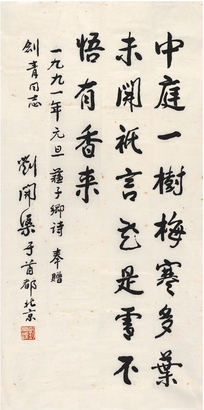 中庭一樹梅寒多葉
未開祇言花是雪不
悟有香来
一九九一年元旦 蘇子卿詩 奉贈
劍青同志
劉開渠于首都北京